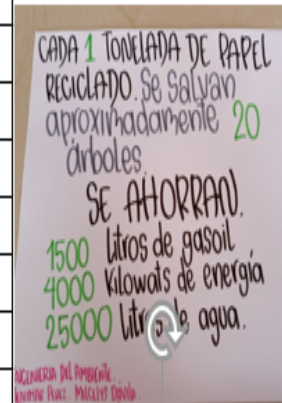 CADA 1 TONELADA DE PAPEL
RECICLADO. Se Salvan
aproximadamente 20
árboles
SE AHORRAN.
1500 litros de gasoil
4000 Kilowats de energía
25000 litros de agua.
INGENIERIA DEL AMBIENTE.